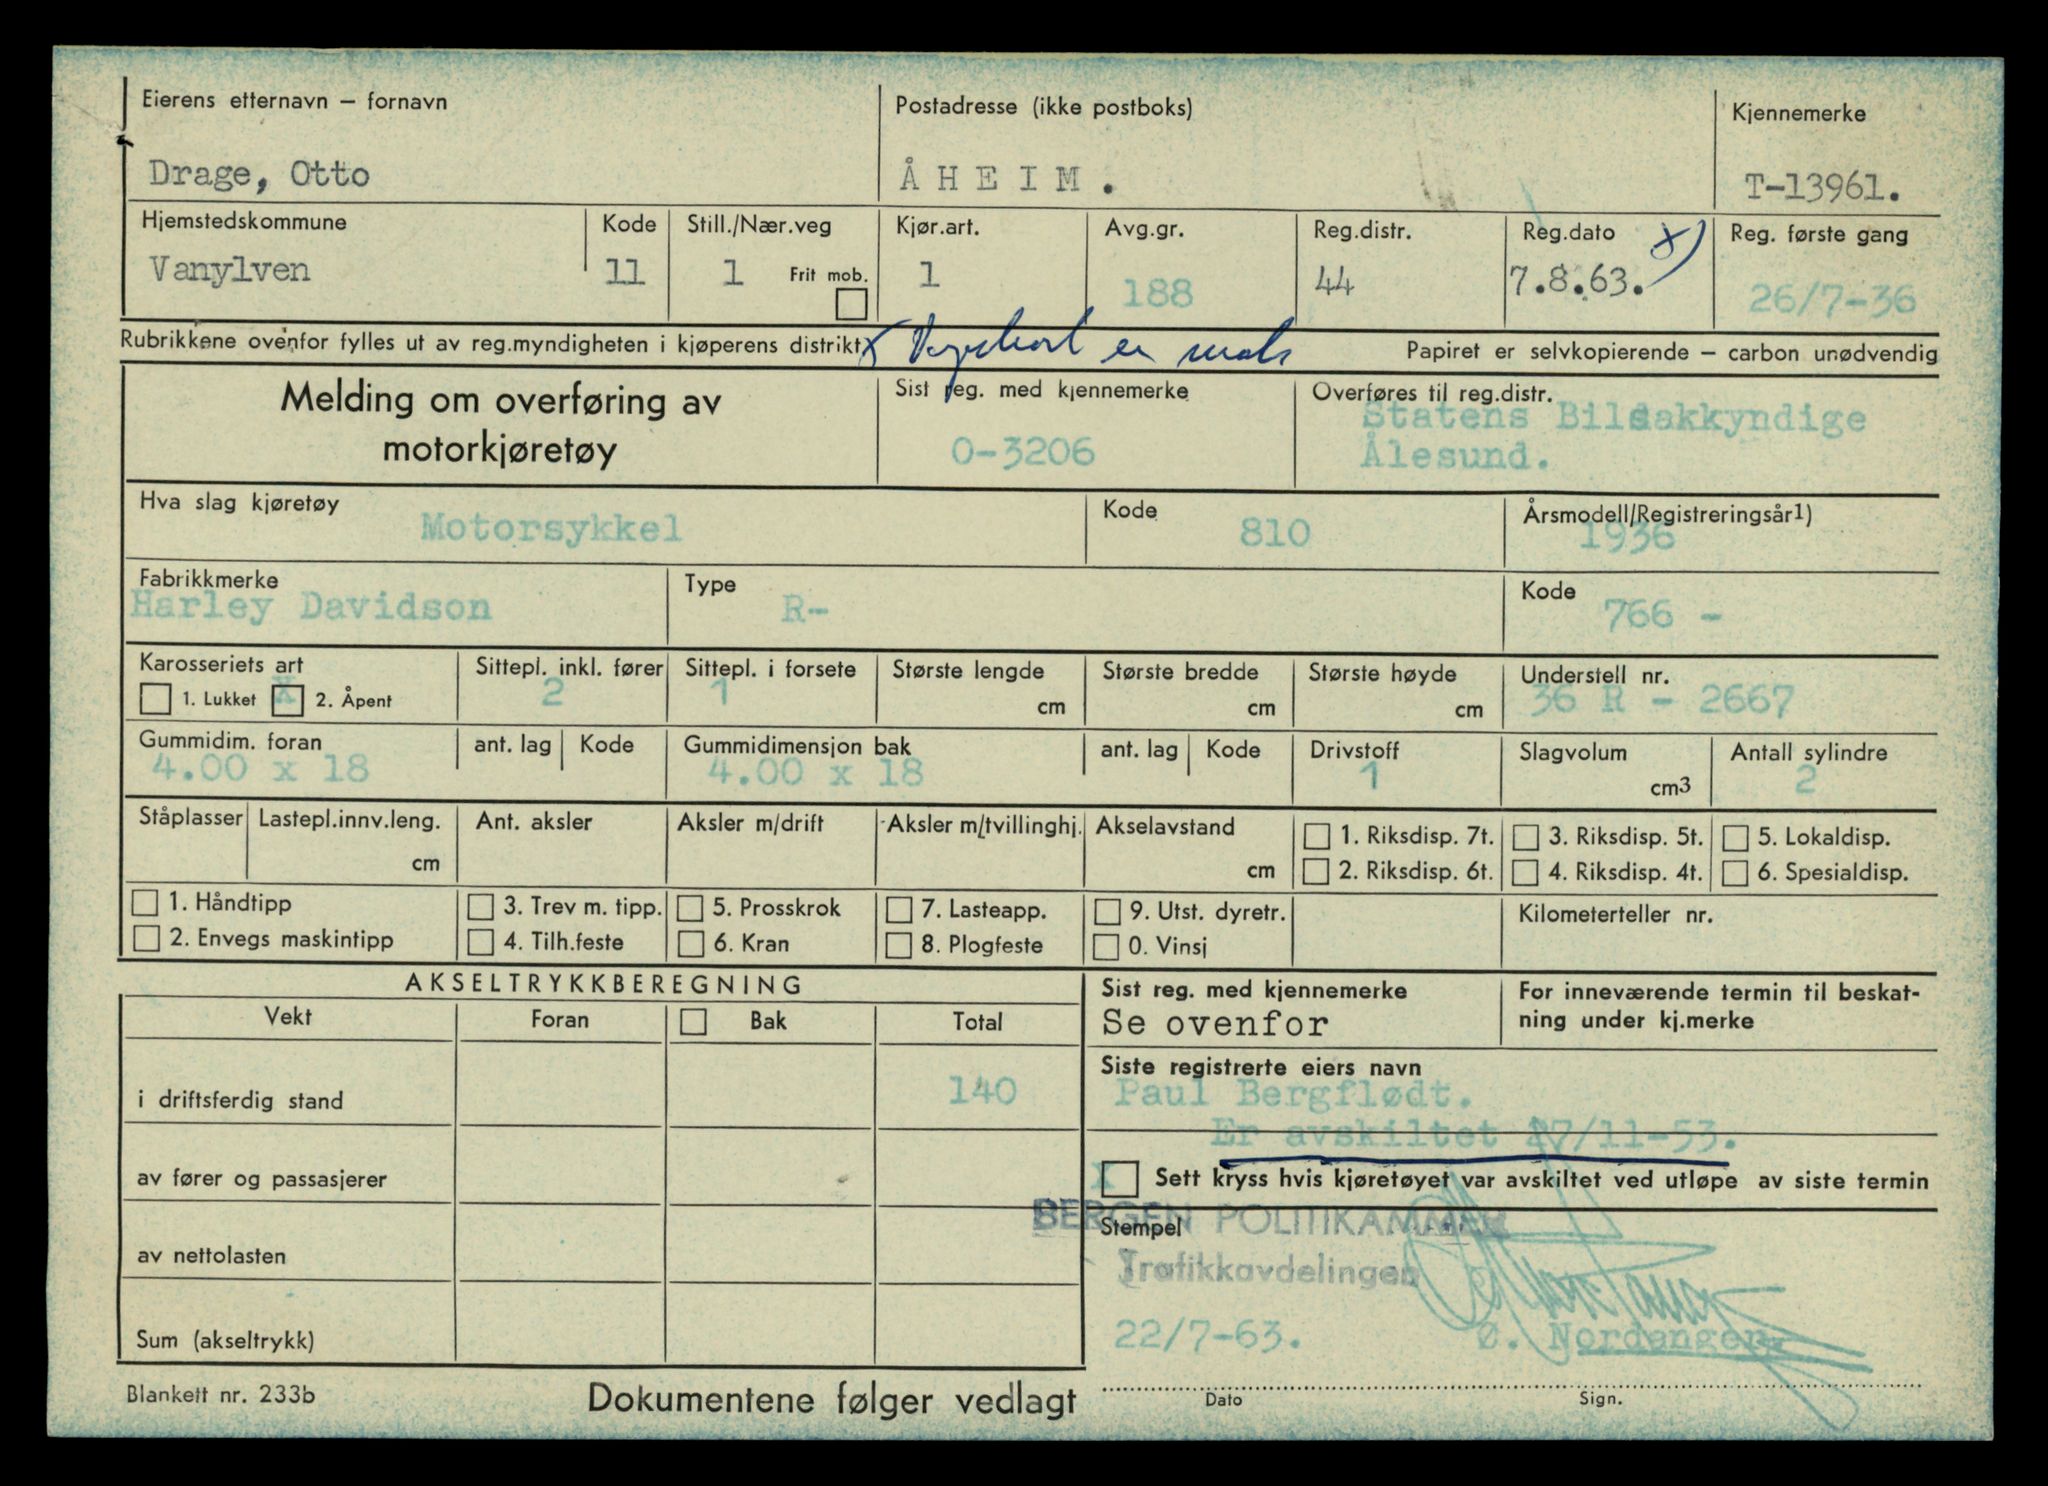 Eierens etternavn – fornavn
Postadresse (ikke postboks)
Kjennemerke
Drage, Otto
ÅHEIM.
T-13961.
Hjemstedskommune
Kode
Still./Nær.veg
Kjør.art.
Avg.gr.
Reg.distr.
Reg.dato
x)
Reg. første gang
Vanylven
11
1
Frit mob.
1
188
44
7.8.63.
26/7-36
Rubrikkene ovenfor fylles ut av reg.myndigheten i kjøperens distrikt
x
er
Papiret er selvkopierende – carbon unødvendig
Melding om overføring av
motorkjøretøy
Sist reg. med kjennemerke
O-3206
Overføres til reg.distr.
Statens Bilsakkyndige
Ålesund.
Hva slag kjøretøy
Motorsykkel
Kode
810
Årsmodell/Registreringsår1)
1936
Fabrikkmerke
Harley Davidson
Type
R-
Kode
766 -
Karosseriets art
1. Lukket
X
2. Åpent
Sittepl. inkl. fører
2
Sittepl. i forsete
1
Største lengde
cm
Største bredde
cm
Største høyde
cm
Understell nr.
36 R - 2667
Gummidim. foran
4.00 x 18
ant. lag
Kode
Gummidimensjon bak
4.00 x 18
ant. lag
Kode
Drivstoff
1
Slagvolum
cm3
Antall sylindre
2
Ståplasser
Lastepl.innv.leng.
cm
Ant. aksler
Aksler m/drift
Aksler m/tvillinghj.
Akselavstand
cm
1. Riksdisp. 7t.
3. Riksdisp. 5t.
5. Lokaldisp.
2. Riksdisp. 6t.
4. Riksdisp. 4t.
6. Spesialdisp.
1. Håndtipp
3. Trev m. tipp.
5. Prosskrok
7. Lasteapp.
9. Utst. dyretr.
Kilometerteller nr.
2. Envegs maskintipp
4. Tilh.feste
6. Kran
8. Plogfeste
0. Vinsj
AKSELTRYKKBEREGNING
Vekt
Foran
Bak
Total
i driftsferdig stand
140
av fører og passasjerer
av nettolasten
Sum (akseltrykk)
Sist reg. med kjennemerke
Se ovenfor
For inneværende termin til beskat-
ning under kj.merke
Siste registrerte eiers navn
Paul Bergflødt.
Er avskiltet 27/11-53.
X
Sett kryss hvis kjøretøyet var avskiltet ved utløpe av siste termin
BERGEN POLITIKAMMER
Stempel
Trafikkavdelingen
22/7-63.
Ø. Nordanger
Dato
Sign.
Blankett nr. 233b
Dokumentene følger vedlagt